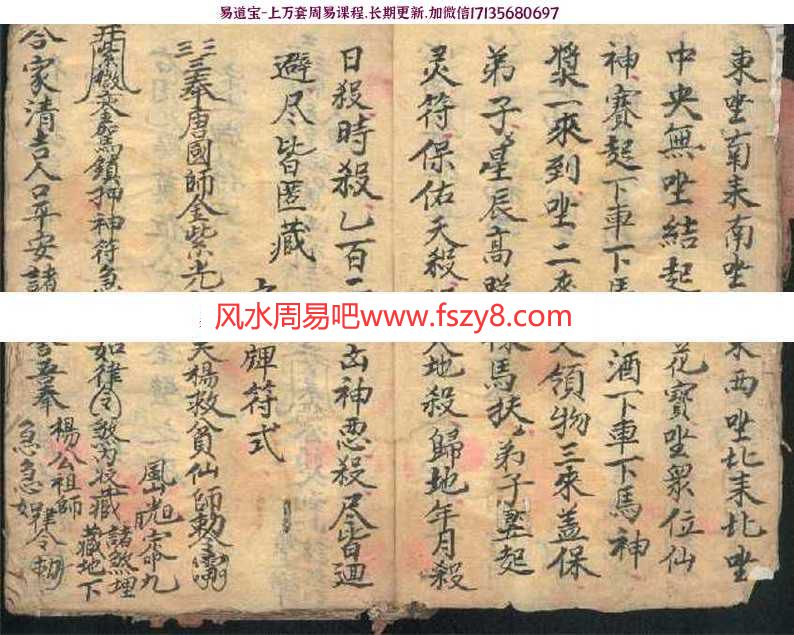 易道宝-上万套周易课程.长期更新.加微信17135680697
東坐南来南坐 東西坐北来北坐
中央無坐結起 花寶坐衆位仙
神賽起下車下馬 酒下車下馬神
漿一來到坐二來 領物三來蓋保
弟子星辰高 馬扶弟子竪起
灵符保佑天殺 地殺歸地年月殺
日殺時殺乙百二 凶神恶殺尽皆迴
避尽皆匿藏
符式
奉唐國師金紫光 楊救貧仙師勅令
紫微鑾駕鎖押神符急 如律令煞為收藏
諸煞埋
藏地下
合家清吉人口平安諸 吾奉
楊公祖師
急急如律令勅
风水周易吧www.fszy8.com